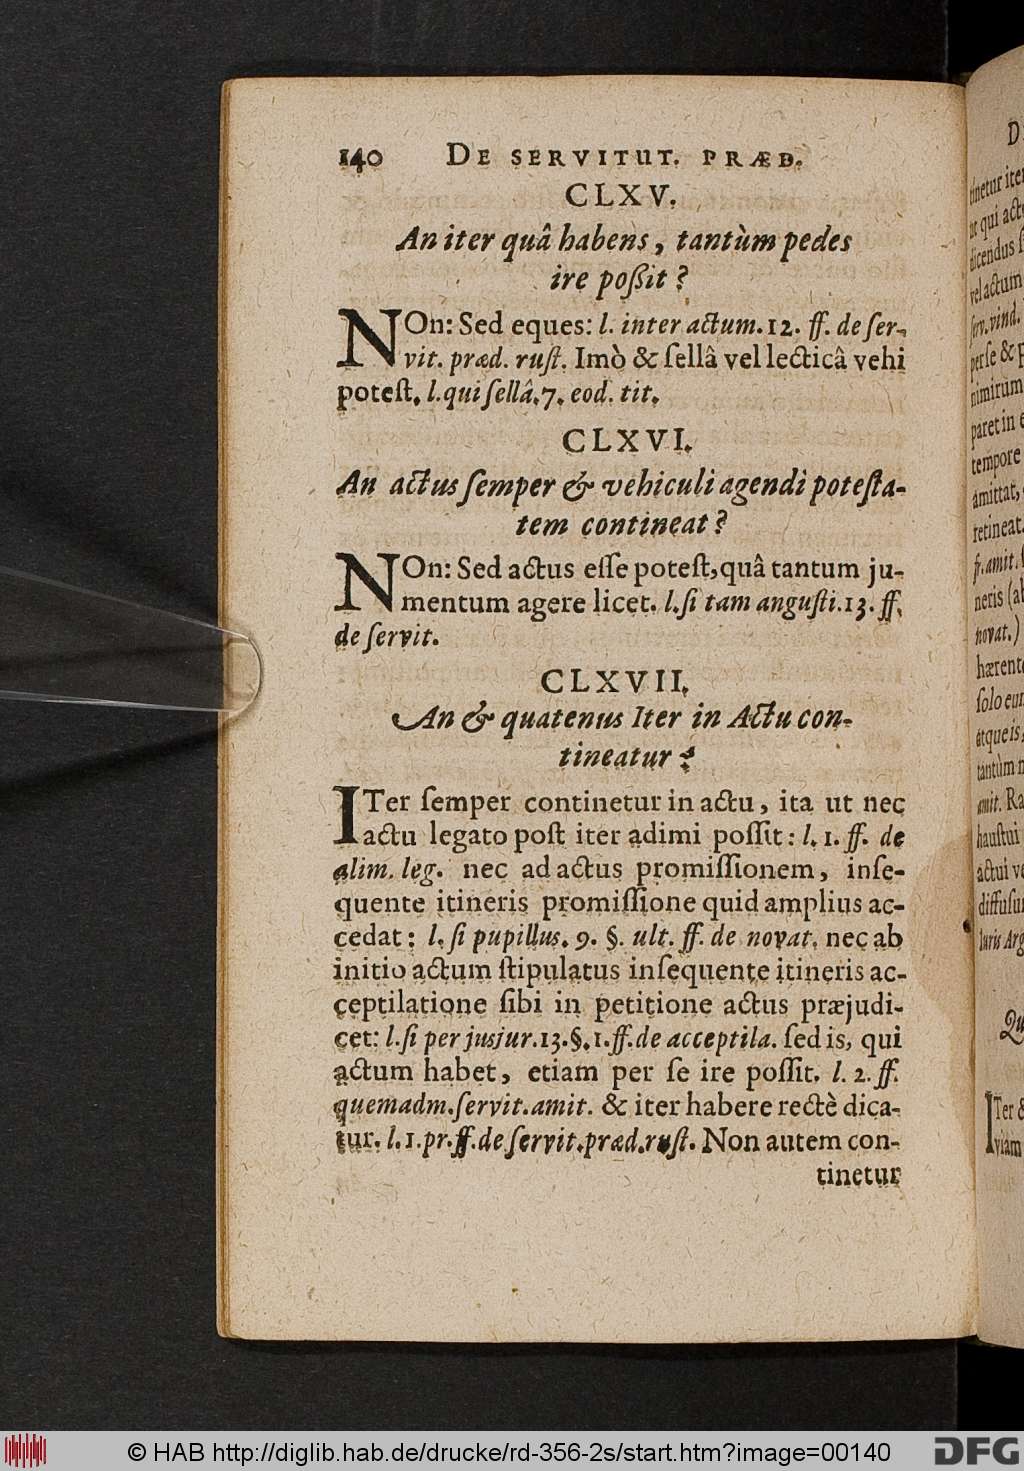 140 DE SERVITUT. PRÆD.
CLXV.
An iter quâ habens, tantùm pedes
ire poßit?
NOn: Sed eques: l. inter actum. 12. ff. de ser-
vit. præd. rust. Imò & sellâ vel lecticâ vehi
potest. l. qui sellâ. 7. eod. tit.
CLXVI.
An actus semper & vehiculi agendi potesta-
tem contineat?
NOn: Sed actus esse potest, quâ tantum ju-
mentum agere licet. l. si tam angusti. 13. ff.
de servit.
CLXVII.
An & quatenus Iter in Actu con-
tineatur?
ITer semper continetur in actu, ita ut nec
actu legato post iter adimi possit: l. 1. ff. de
alim. leg. nec ad actus promissionem, inse-
quente itineris promissione quid amplius ac-
cedat: l. si pupillus. 9. §. ult. ff. de novat. nec ab
initio actum stipulatus insequente itineris ac-
ceptilatione sibi in petitione actus præjudi-
cet: l. si per jusjur. 13. §. 1. ff. de acceptila. sed is, qui
actum habet, etiam per se ire possit. l. 2. ff.
quemadm. servit. amit. & iter habere rectè dica-
tur. l. 1. pr. ff. de servit. præd. rust. Non autem con-
tinetur
tinetur
ut qui
dicendus
vel actum
serv. vind.
per se &
nimirum
paret in
tempore
amittat,
retineat.
fr. amit.
neris
novat.)
solo
atque is,
tantùm
amit.
haustui
actui
Juris
ITer &
viam
© HAB http://diglib.hab.de/drucke/rd-356-2s/start.htm?image=00140
DFG